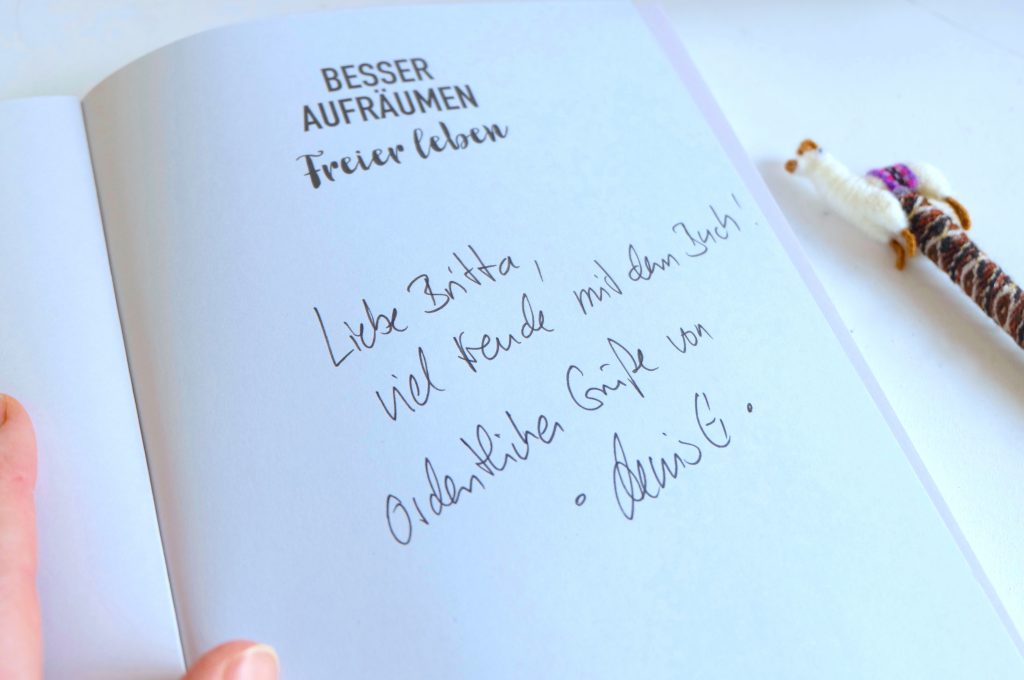 BESSER
AUFRÄUMEN
Freier leben
Liebe Britta,
viel Freude mit dem Buch!
Ordentliche Grüße von
Denis G.